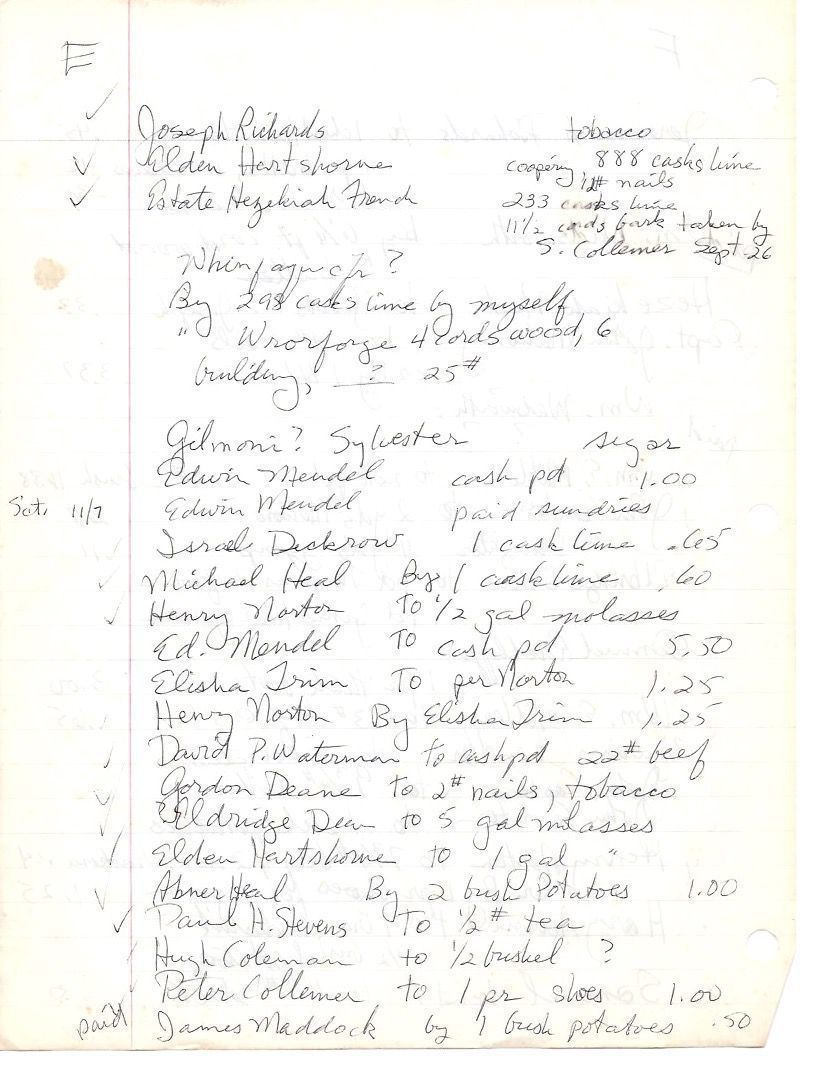 E
Joseph Richards tobacco
Elden Hartshorne coopery 888 casks lime
12# nails
Estate Hezekiah French 233 casks lime
11 1/2 cords bark taken by
S. Collemer Sept. 26
?
By 298 casks lime by myself
" 4 cords wood, 6
building, ? 25#
Gilmoni? Sylvester sugar
Edwin Mendel cash pd 1.00
Sat. 11/7 Edwin Mendel paid sundries
Israel Deckrow 1 cask lime .65
Michael Heal By 1 cask lime .60
Henry Norton To 1/2 gal molasses
Ed. Mendel To cash pd 5.50
Elisha Trim To per Norton 1.25
Henry Norton By Elisha Trim 1.25
David P. Waterman to cash pd 22# beef
Gordon Deane to 2# nails, tobacco
?Eldridge Dean to 5 gal molasses
Elden Hartshorne to 1 gal "
Abner Heal By 2 bush Potatoes 1.00
Paul H. Stevens To 1/2# tea
Hugh Coleman to 1/2 bushel ?
Peter Collemer to 1 pr shoes 1.00
paid James Maddock by 1 bush potatoes .50